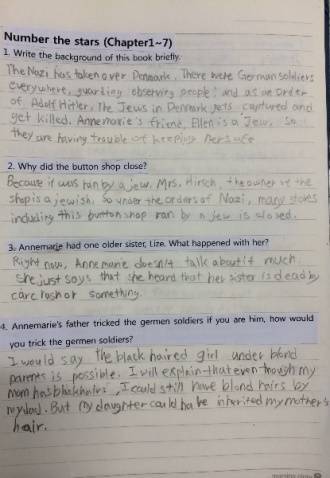 Number the stars (Chapter1~7)
1. Write the background of this book briefly.
The Nazi has taken over Denmark. There were German soldiers
everywhere, guarding observing people; and as an order
of Adolf Hitler, The Jews in Denmark gets captured and
get killed. Annemarie's friend, Ellen is a Jew, So
they are having trouble of keeping her safe
2. Why did the button shop close?
Because it was ran by a jew. Mrs. Hirsch, the owner of the
shop is a jewish. So under the orders of Nazi, many stores
including this button shop ran by a jew is closed.
3. Annemarie had one older sister, Lize. What happened with her?
Right now, Annemarie doesn't talk about it much.
She just says that she heard that her sister is dead by
car crash or something.
4. Annemarie's father tricked the germen soldiers if you are him, how would
you trick the germen soldiers?
I would say the black haired girl under blond
parents is possible. I will explain that even though my
mom has black hairs, I could still have blond hairs by
my dad. But my daughter could have inherited my mother's
hair.